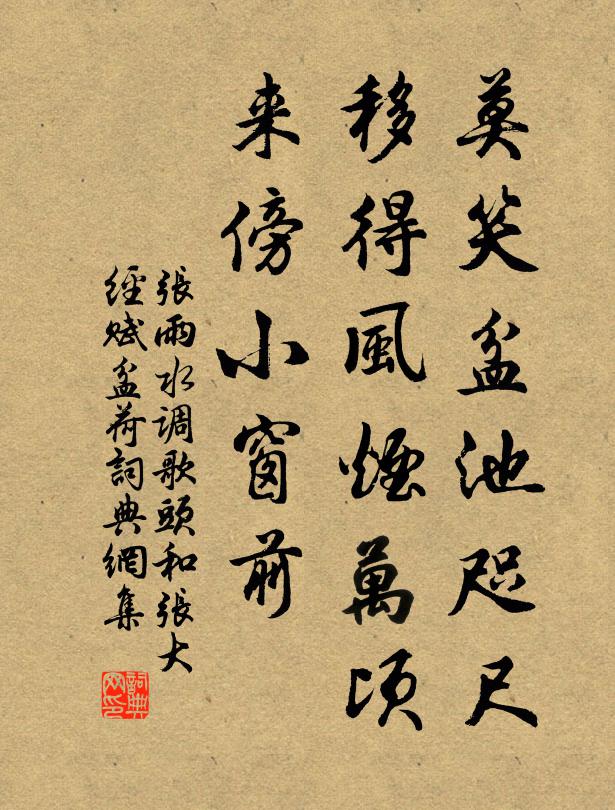 莫笑盆池咫尺
移得風煙萬頃
来傍小窗前
張雨水调歌頭和張大
經賦盆荷詞典網集
詞典
网印